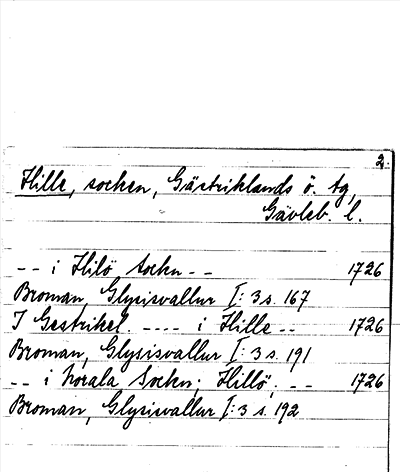 2.
Hille, socken, Gästriklands ö. tg,
Gävleb. l.
-- i Hilö Sockn -- 1726
Broman, Glysisvallur I: 3 s. 167
I Gestrikel. ---- i Hille -- 1726
Broman, Glysisvallur I: 3 s. 191
-- i Norala Sockn; Hillö; -- 1726
Broman, Glysisvallur I: 3 s. 192